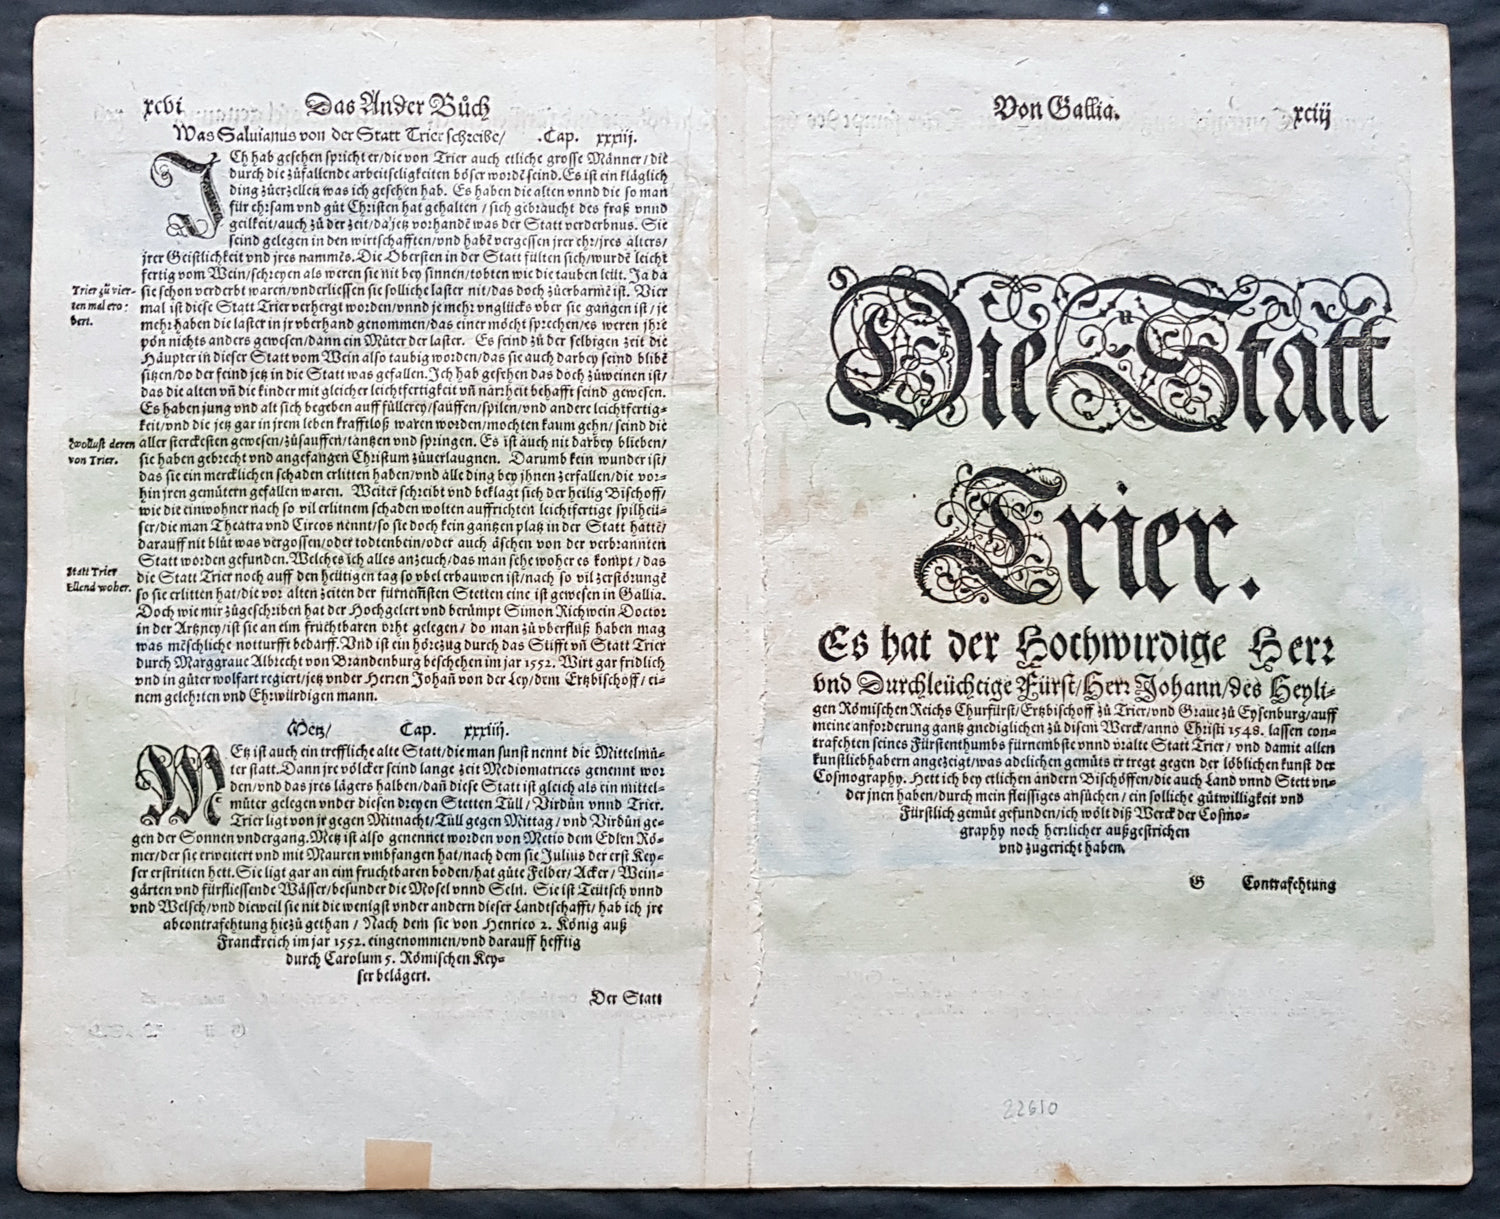 xcvi Das Ander Bůch
Was Saluianus von der Statt Trier schreibe/ .Cap. xxxiii.
ICh hab gesehen spricht er/die von Trier auch etliche grosse Männer/die
durch die zůfallende arbeitseligkeiten böser wordē seind. Es ist ein kläglich
ding zůerzellen was ich gesehen hab. Es haben die alten vnnd die so man
für ehrsam vnd gůt Christen hat gehalten/sich gebraucht des fraß vnnd
geilkeit/auch zů der zeit/da jetz vorhandē was der Statt verderbnus. Sie
seind gelegen in den wirtschafften/vnd habē vergessen jrer ehr/jres alters/
jrer Geistlichkeit vnd jres nammēs. Die Obersten in der Statt fülten sich/wurdē leicht
fertig vom Wein/schreyen als weren sie nit bey sinnen/tobten wie die tauben leüt. Ja da
Trier zů vier-
ten mal ero:
bert.
sie schon verderbt waren/vnderliessen sie solliche laster nit/das doch zůerbarmē ist. Vier
mal ist diese Statt Trier verhergt worden/vnnd je mehr vnglücks vber sie gangen ist/je
mehr haben die laster in jr vberhand genommen/das einer möcht sprechen/es weren jhrē
pōn nichts anders gewesen/dann ein Můter der laster. Es seind zů der selbigen zeit die
Häupter in dieser Statt vom Wein also taubig worden/das sie auch darbey seind blibē
sitzen/do der feind jetz in die Statt was gefallen. Ich hab gesehen das doch zůweinen ist/
das die alten vñ die kinder mit gleicher leichtfertigkeit vñ narrheit behafft seind gewesen.
Es haben jung vnd alt sich begeben auff füllerey/sauffen/spilen/vnd andere leichtfertig-
keit/vnd die jetz gar in jrem leben krafftloß waren worden/mochten kaum gehn/seind die
Wollust deren
von Trier.
aller sterckesten gewesen/zůsauffen/tantzen vnd springen. Es ist auch nit darbey blieben/
sie haben gebrecht vnd angefangen Christum zůuerlaugnen. Darumb kein wunder ist/
das sie ein mercklichen schaden erlitten haben/vnd alle ding bey jhnen zerfallen/die vor-
hin jren gemütern gefallen waren. Weiter schreibt vnd beklagt sich der heilig Bischoff/
wie die einwohner nach so vil erlitnem schaden wolten auffrichten leichtfertige spilheü-
ser/die man Theatra vnd Circos nennt/so sie doch kein gantzen platz in der Statt hatte/
darauff nit blůt was vergossen/oder todtenbein/oder auch äschen von der verbrannten
Statt worden gefunden. Welches ich alles anzeuch/das man sehe woher es kompt/das
Statt Trier
Ellend woher.
die Statt Trier noch auff den heütigen tag so vbel erbauwen ist/nach so vil zerstörungē
so sie erlitten hat/die vor alten zeiten der fürnem̃sten Stetten eine ist gewesen in Gallia.
Doch wie mir zůgeschriben hat der Hochgelert vnd berümpt Simon Richwein Doctor
in der Artzney/ist sie an eim fruchtbaren orht gelegen/do man zů vberfluß haben mag
was mēschliche notturfft bedarff. Vnd ist ein hörezug durch das Stifft vñ Statt Trier
durch Marggraue Albrecht von Brandenburg beschehen im jar 1552. Wirt gar fridlich
vnd in gůter wolfart regiert/jetz vnder Herren Johañ von der Ley/dem Ertzbischoff/ei-
nem gelehrten vnd Ehrwürdigen mann.
Metz/ Cap. xxxiiij.
MEtz ist auch ein treffliche alte Statt/die man sunst nennt die Mittelmů-
ter statt. Dann jre völcker seind lange zeit Mediomatrices genennt wor
den/vnd das jres lägers halben/dañ diese Statt ist gleich als ein mittel-
můter gelegen vnder diesen dreyen Stetten Tüll/Virdůn vnnd Trier.
Trier ligt von jr gegen Mitnacht/Tüll gegen Mittag/vnd Virdůn ge-
gen der Sonnen vndergang. Metz ist also genennet worden von Metio dem Edlen Rö-
mer/der sie erweitert vnd mit Mauren vmbfangen hat/nach dem sie Julius der erst Key-
ser erstritten hett. Sie ligt gar an eim fruchtbaren boden/hat gůte Felder/Acker/Wein-
gärten vnd fürfliessende Wässer/besunder die Mosel vnnd Seln. Sie ist Teütsch vnnd
vnd Welsch/vnd dieweil sie nit die wenigst vnder andern dieser Landtschafft/hab ich jre
abcontrafehtung hiezů gethan/Nach dem sie von Henrico 2. König auß
Franckreich im jar 1552. eingenommen/vnd darauff hefftig
durch Carolum 5. Römischen Key-
ser belägert.
Der Statt
Von Gallia. xciij
Die Statt
Trier.
Es hat der Hochwirdige Herr
vnd Durchleüchtige Fürst/Herr Johann/des Heyli-
gen Römischen Reichs Churfürst/Ertzbischoff zů Trier/vnd Graue zů Eysenburg/auff
meine anforderung gantz gnediglichen zů disem Werck/anno Christi 1548. lassen con-
trafehten seines Fürstenthumbs fürnembste vnnd vralte Statt Trier/vnd damit allen
kunstliebhabern angezeigt/was adelichen gemüts er tregt gegen der löblichen kunst der
Cosmography. Hett ich bey etlichen andern Bischöffen/die auch Land vnnd Stett vn-
der jnen haben/durch mein fleissiges ansůchen/ein solliche gůtwilligkeit vnd
Fürstlich gemüt gefunden/ich wölt diß Werck der Cosmo-
graphy noch herrlicher außgestrichen
vnd zugericht haben.
G Contrafehtung
22610